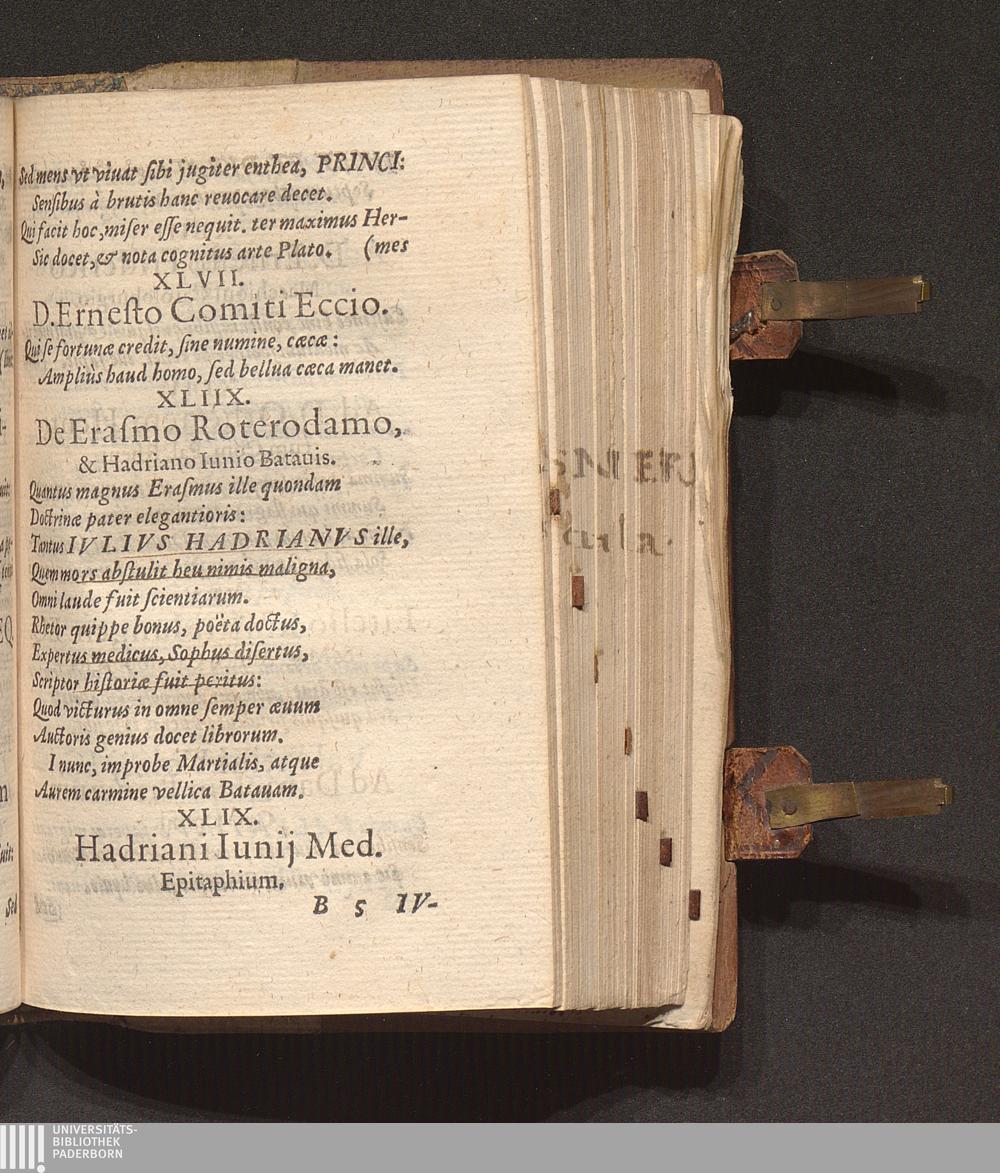 Sed mens vt viuat ſibi jugiter enthea, PRINCI:
Senſibus à brutis hanc reuocare decet.
Qui facit hoc, miſer eſſe nequit. ter maximus Her-
Sic docet, & nota cognitus arte Plato. (mes
XLVII.
D. Erneſto Comiti Eccio.
Qui ſe fortunæ credit, ſine numine, cæcæ:
Ampliùs haud homo, ſed bellua cæca manet.
XLIIX.
De Eraſmo Roterodamo,
& Hadriano Iunio Batauis.
Quantus magnus Eraſmus ille quondam
Doctrinæ pater elegantioris:
Tantus IVLIVS HADRIANVS ille,
Quem mors abſtulit heu nimis maligna,
Omni laude fuit ſcientiarum.
Rhetor quippe bonus, poëta doctus,
Expertus medicus, Sophus diſertus,
Scriptor hiſtoriæ fuit peritus:
Quod victurus in omne ſemper æuum
Auctoris genius docet librorum.
I nunc, improbe Martialis, atque
Aurem carmine vellica Batauam.
XLIX.
Hadriani Iunij Med.
Epitaphium.
B 5 IV-
Sed
UNIVERSITÄTS-
BIBLIOTHEK
PADERBORN